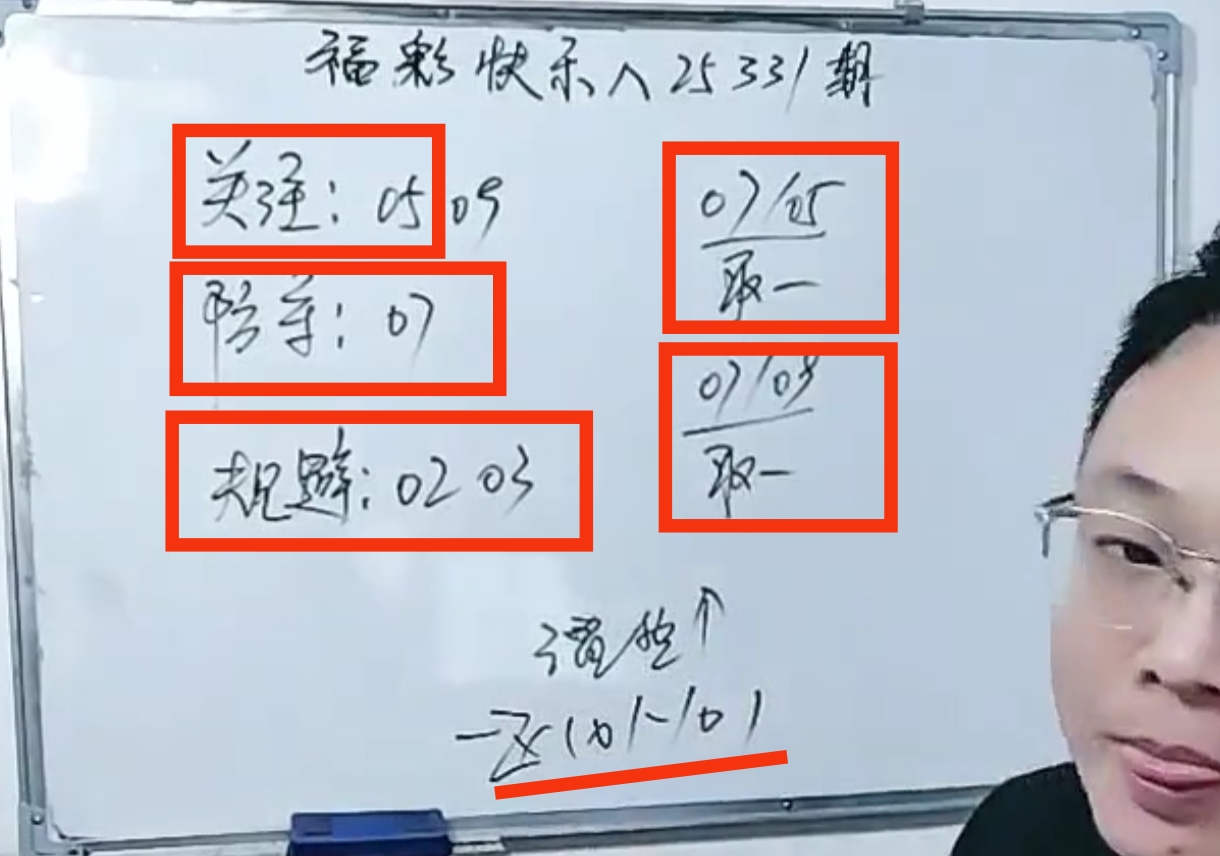 福彩快乐八25331期
关注：05 09
防守：07
规避：02 03
07/05
取一
07/09
取一
谨驼个
一区(01-10)